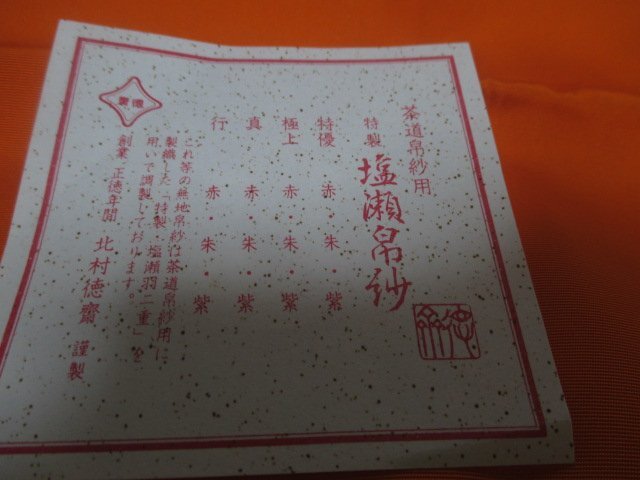 茶道帛紗用
特製 塩瀬帛紗
特優 赤・朱・紫
極上 赤・朱・紫
真 赤・朱・紫
行 赤・朱・紫
これ等の無地帛紗は茶道帛紗用に
製織した「特製 塩瀬羽二重」を
用いて調製しております。
創業 正徳年間 北村徳齋 謹製